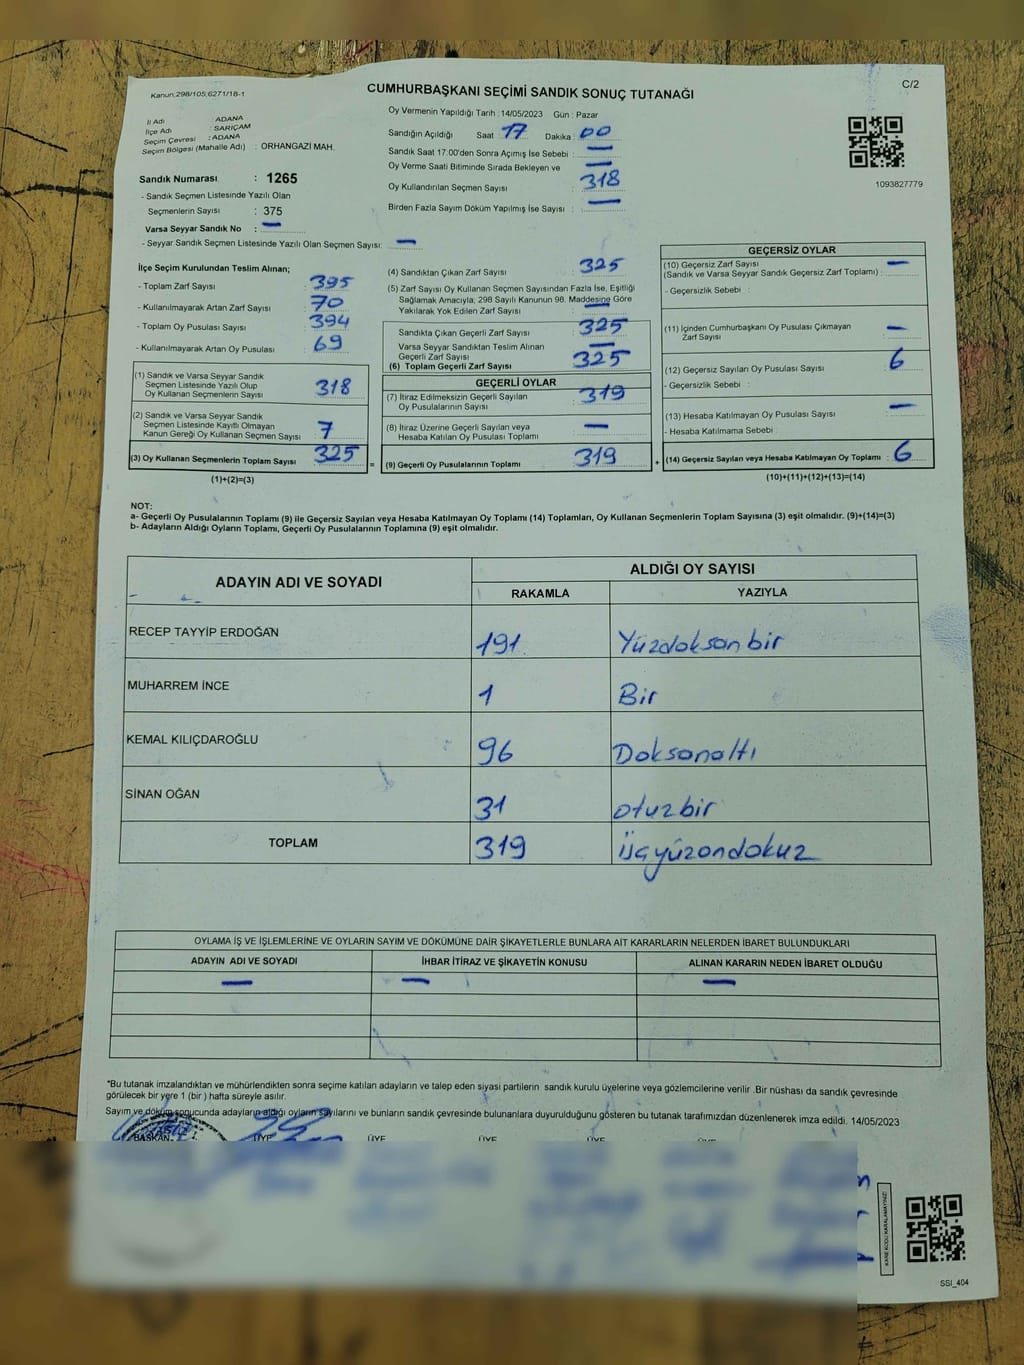 Kanun:298/105;6271/18-1
CUMHURBAŞKANI SEÇİMİ SANDIK SONUÇ TUTANAĞI
C/2
İl Adı : ADANA
İlçe Adı : SARIÇAM
Seçim Çevresi : ADANA
Seçim Bölgesi (Mahalle Adı) : ORHANGAZİ MAH.
Sandık Numarası : 1265
- Sandık Seçmen Listesinde Yazılı Olan
Seçmenlerin Sayısı : 375
Varsa Seyyar Sandık No : —
- Seyyar Sandık Seçmen Listesinde Yazılı Olan Seçmen Sayısı: —
Oy Vermenin Yapıldığı Tarih : 14/05/2023 Gün : Pazar
Sandığın Açıldığı Saat 17 Dakika 00
Sandık Saat 17.00'den Sonra Açımış İse Sebebi : —
Oy Verme Saati Bitiminde Sırada Bekleyen ve —
Oy Kullandırılan Seçmen Sayısı : 318
Birden Fazla Sayım Döküm Yapılmış İse Sayısı : —
1093827779
İlçe Seçim Kurulundan Teslim Alınan;
- Toplam Zarf Sayısı : 395
- Kullanılmayarak Artan Zarf Sayısı : 70
- Toplam Oy Pusulası Sayısı : 394
- Kullanılmayarak Artan Oy Pusulası : 69
(1) Sandık ve Varsa Seyyar Sandık
Seçmen Listesinde Yazılı Olup
Oy Kullanan Seçmenlerin Sayısı : 318
(2) Sandık ve Varsa Seyyar Sandık
Seçmen Listesinde Kayıtlı Olmayan
Kanun Gereği Oy Kullanan Seçmen Sayısı : 7
(3) Oy Kullanan Seçmenlerin Toplam Sayısı : 325
(1)+(2)=(3)
(4) Sandıktan Çıkan Zarf Sayısı : 325
(5) Zarf Sayısı Oy Kullanan Seçmen Sayısından Fazla İse, Eşitliği
Sağlamak Amacıyla; 298 Sayılı Kanunun 98. Maddesine Göre
Yakılarak Yok Edilen Zarf Sayısı : —
Sandıkta Çıkan Geçerli Zarf Sayısı : 325
Varsa Seyyar Sandıktan Teslim Alınan
Geçerli Zarf Sayısı : —
(6) Toplam Geçerli Zarf Sayısı : 325
GEÇERLİ OYLAR
(7) İtiraz Edilmeksizin Geçerli Sayılan
Oy Pusulalarının Sayısı : 319
(8) İtiraz Üzerine Geçerli Sayılan veya
Hesaba Katılan Oy Pusulaları Toplamı : —
= (9) Geçerli Oy Pusulalarının Toplamı : 319
GEÇERSİZ OYLAR
(10) Geçersiz Zarf Sayısı : —
(Sandık ve Varsa Seyyar Sandık Geçersiz Zarf Toplamı) :
- Geçersizlik Sebebi :
(11) İçinden Cumhurbaşkanı Oy Pusulası Çıkmayan
Zarf Sayısı : —
(12) Geçersiz Sayılan Oy Pusulası Sayısı : 6
- Geçersizlik Sebebi :
(13) Hesaba Katılmayan Oy Pusulası Sayısı : —
- Hesaba Katılmama Sebebi :
+ (14) Geçersiz Sayılan veya Hesaba Katılmayan Oy Toplamı : 6
(10)+(11)+(12)+(13)=(14)
NOT:
a- Geçerli Oy Pusulalarının Toplamı (9) ile Geçersiz Sayılan veya Hesaba Katılmayan Oy Toplamı (14) Toplamları, Oy Kullanan Seçmenlerin Toplam Sayısına (3) eşit olmalıdır. (9)+(14)=(3)
b- Adayların Aldığı Oyların Toplamı, Geçerli Oy Pusulalarının Toplamına (9) eşit olmalıdır.
ADAYIN ADI VE SOYADI ALDIĞI OY SAYISI
RAKAMLA YAZIYLA
RECEP TAYYİP ERDOĞAN 191 Yüzdoksanbir
MUHARREM İNCE 1 Bir
KEMAL KILIÇDAROĞLU 96 Doksanaltı
SİNAN OĞAN 31 otuzbir
TOPLAM 319 üçyüzondokuz
OYLAMA İŞ VE İŞLEMLERİNE VE OYLARIN SAYIM VE DÖKÜMÜNE DAİR ŞİKAYETLERLE BUNLARA AİT KARARLARIN NELERDEN İBARET BULUNDUKLARI
ADAYIN ADI VE SOYADI İHBAR İTİRAZ VE ŞİKAYETİN KONUSU ALINAN KARARIN NEDEN İBARET OLDUĞU
— — —
*Bu tutanak imzalandıktan ve mühürlendikten sonra seçime katılan adayların ve talep eden siyasi partilerin sandık kurulu üyelerine veya gözlemcilerine verilir .Bir nüshası da sandık çevresinde
görülecek bir yere 1 (bir ) hafta süreyle asılır.
Sayım ve döküm sonucunda adayların aldığı oyların sayılarını ve bunların sandık çevresinde bulunanlara duyurulduğunu gösteren bu tutanak tarafımızdan düzenlenerek imza edildi. 14/05/2023
BAŞKAN ÜYE ÜYE ÜYE ÜYE ÜYE
KARE KODU KARALAMAYINIZ!
SSI_404